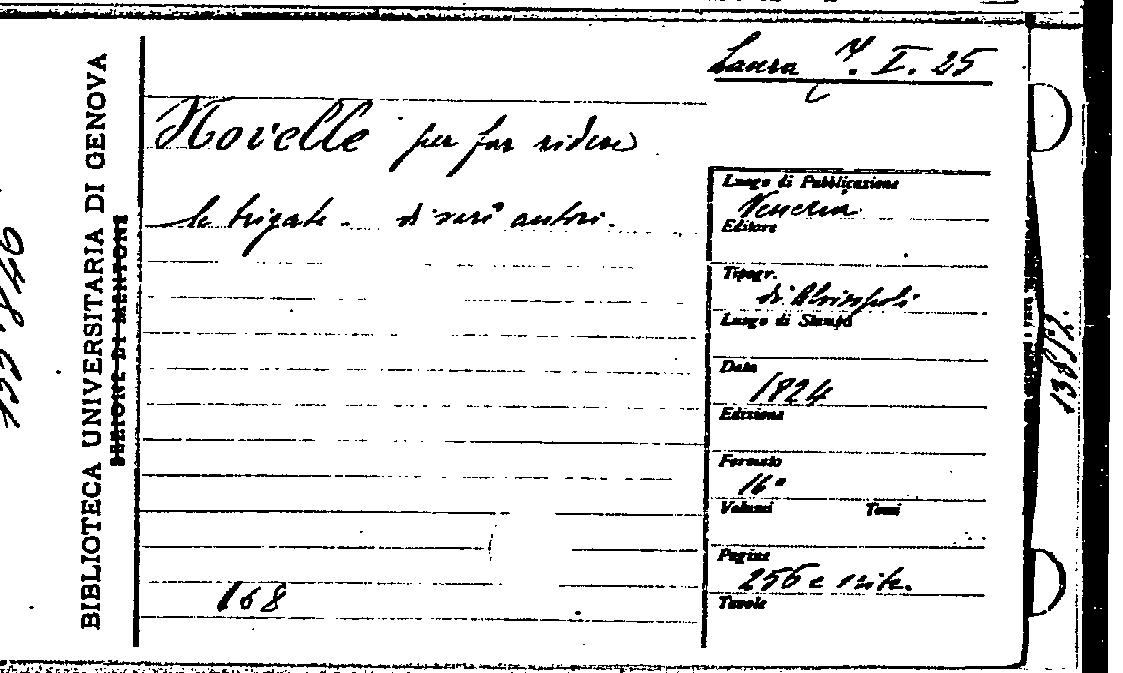 Laura Y. I. 25
Novelle per far ridere
le brigate - di varî autori.
168
BIBLIOTECA UNIVERSITARIA DI GENOVA
SEZIONE DI MENTONE
Luogo di Pubblicazione
Venezia
Editore
Tipogr.
di Alvisopoli
Luogo di Stampa
Data
1824
Edizione
Formato
16º
Volumi Tomi
Pagine
256 e
Tavole